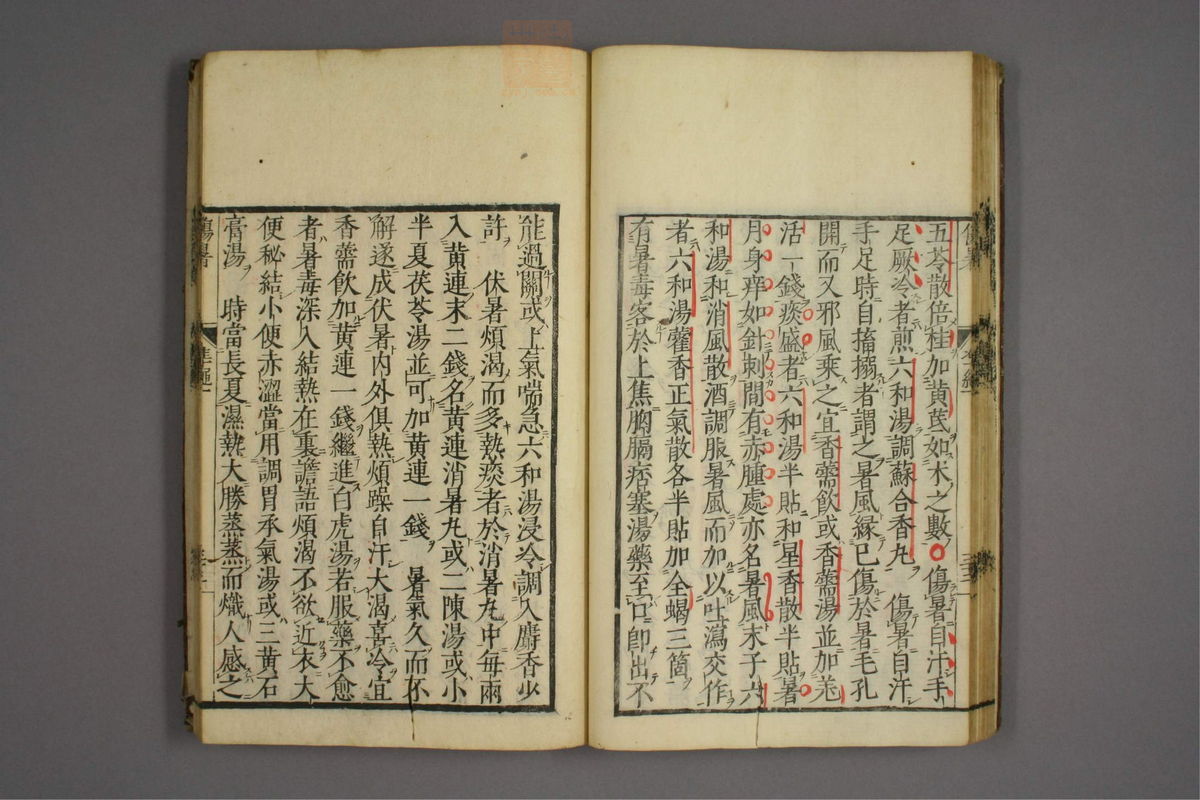 五苓散倍桂加黄芪如术之數 傷暑自汗手
足厥冷者煎六和湯調蘇合香丸 傷暑自汗
手足時自搐搦者謂之暑風緣已傷於暑毛孔
開而又邪風乘之宜香薷飲或香薷湯並加羌
活一錢痰盛者六和湯半貼和星香散半貼暑
月身痒如針刺間有赤腫處亦名暑風末子六
和湯和消風散酒調服暑風而加以吐瀉交作
者六和湯藿香正氣散各半貼加全蝎三箇
有暑毒客於上焦胸膈痞塞湯藥至口卽出不
能過關或上氣喘急六和湯浸冷調入麝香少
許 伏暑煩渴而多熱痰者於消暑丸中毎兩
入黄連末二錢名黄連消暑丸或二陳湯或小
半夏茯苓湯並可加黄連一錢 暑氣久而不
解遂成伏暑内外俱熱煩躁自汗大渴喜冷宜
香薷飲加黄連一錢繼進白虎湯若服藥不愈
者暑毒深入結熱在裏譫語煩渴不欲近衣大
便秘結小便赤澀當用調胃承氣湯或三黄石
膏湯 時當長夏濕熱大勝蒸蒸而熾人感之
傷暑